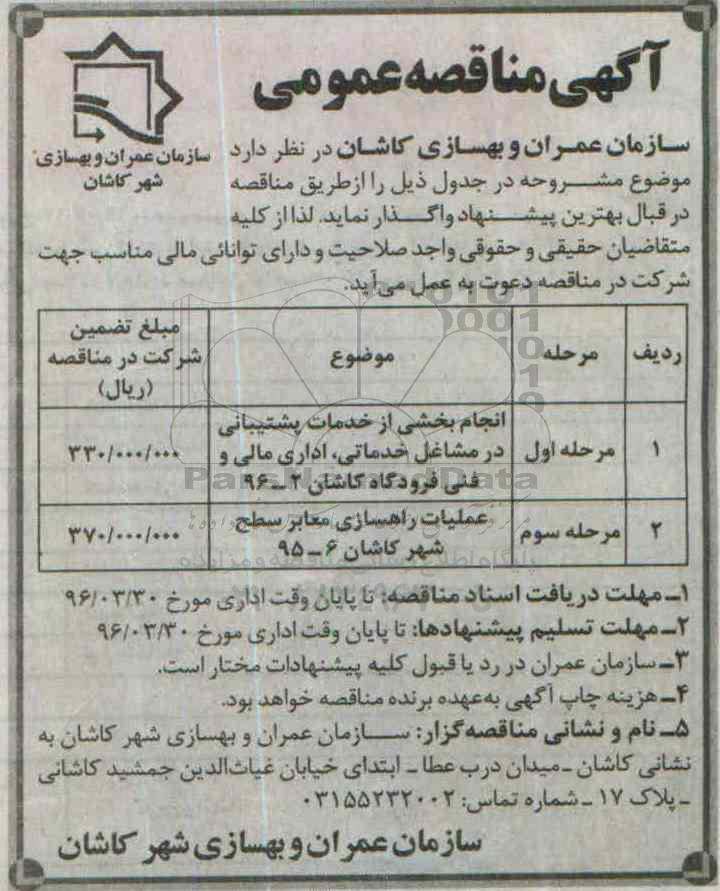 آگهی مناقصه عمومی
سازمان عمران و بهسازی
شهر کاشان
سازمان عمران و بهسازی کاشان در نظر دارد
موضوع مشروحه در جدول ذیل را از طریق مناقصه
در قبال بهترین پیشنهاد واگذار نماید. لذا از کلیه
متقاضیان حقیقی و حقوقی واجد صلاحیت و دارای توانائی مالی مناسب جهت
شرکت در مناقصه دعوت به عمل می‌آید.
ردیف مرحله موضوع مبلغ تضمین شرکت در مناقصه (ریال)
۱ مرحله اول انجام بخشی از خدمات پشتیبانی
در مشاغل خدماتی، اداری مالی و
فنی فرودگاه کاشان ۲ــ۹۶ ۳۳۰/۰۰۰/۰۰۰
۲ مرحله سوم عملیات راهسازی معابر سطح
شهر کاشان ۶ــ۹۵ ۳۷۰/۰۰۰/۰۰۰
۱ــ مهلت دریافت اسناد مناقصه: تا پایان وقت اداری مورخ ۹۶/۰۳/۳۰
۲ــ مهلت تسلیم پیشنهادها: تا پایان وقت اداری مورخ ۹۶/۰۳/۳۰
۳ــ سازمان عمران در رد یا قبول کلیه پیشنهادات مختار است.
۴ــ هزینه چاپ آگهی به‌عهده برنده مناقصه خواهد بود.
۵ــ نام و نشانی مناقصه‌گزار: سازمان عمران و بهسازی شهر کاشان به
نشانی کاشان ـ میدان درب عطا ـ ابتدای خیابان غیاث‌الدین جمشید کاشانی
ـ پلاک ۱۷ ـ شماره تماس: ۰۳۱۵۵۲۳۲۰۰۲
سازمان عمران و بهسازی شهر کاشان
ParsNamadData